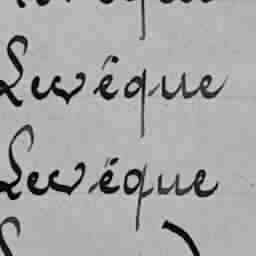 Levêque
Levêque